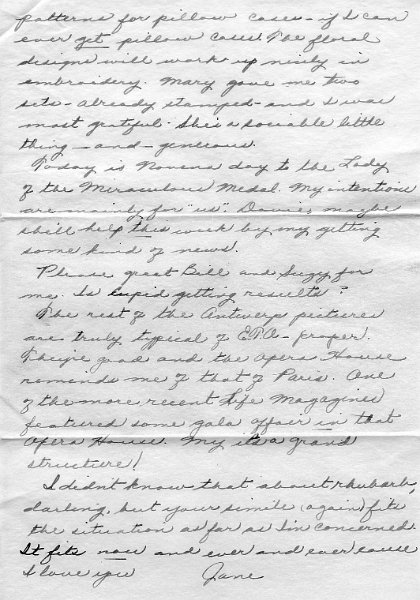 patterns for pillow cases - if I can
ever get pillow cases. The floral
designs will work up nicely in
embroidery. Mary gave me two
sets - already stamped - and I was
most grateful. She's a sociable little
thing - and - generous.
Today is Novena day to the Lady
of the Miraculous Medal. My intentions
are mainly for "us". Davie, maybe
she'll help this week by my getting
some kind of news.
Please greet Bill and Suzy for
me. Is Cupid getting results?
The rest of the Antwerp pictures
are truly typical of E.T.O. - proper.
They're grad and the Opera House
romends me of that of Paris. One
of the more recent Life Magazines
featured some gala affair in that
Opera House. My its a grand
structure!
I didn't know that about rhubarb,
darling, but your simile (again) fits
the situation as far as I'm concerned.
It fits now and ever and ever cause
I love you Jane